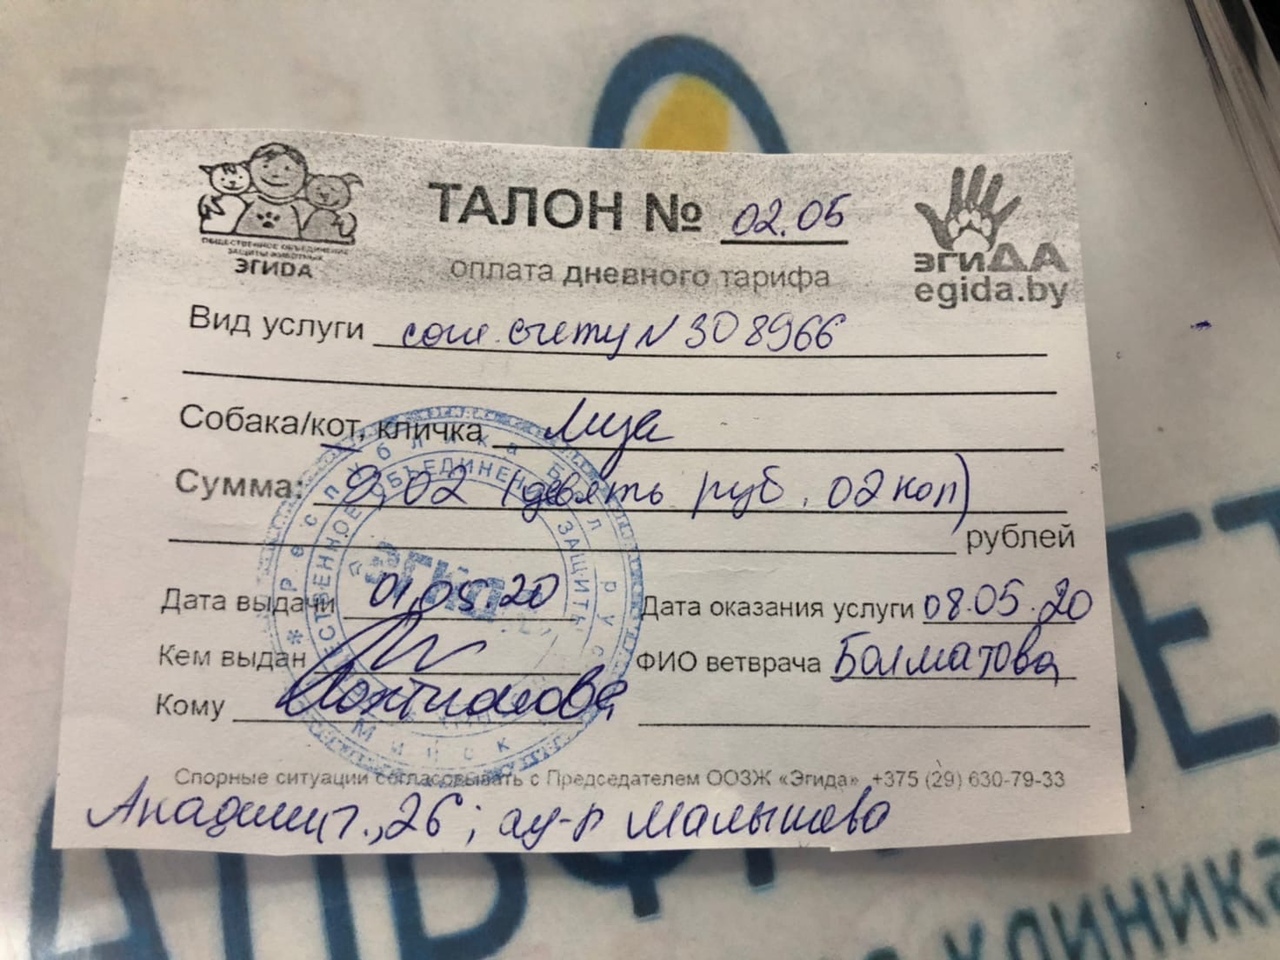 ТАЛОН № 02.05
оплата дневного тарифа
ОБЩЕСТВЕННОЕ ОБЪЕДИНЕНИЕ
ЗАЩИТЫ ЖИВОТНЫХ
ЭГИДА
ЭГИДА
egida.by
Вид услуги согл. счету N 308966
Собака/кот, кличка
Сумма: 9,02 (девять руб. 02 коп)
рублей
Дата выдачи 01.05.20 Дата оказания услуги 08.05.20
Кем выдан ФИО ветврача Болматова
Кому
Спорные ситуации согласовывать с Председателем ООЗЖ «Эгида» +375 (29) 630-79-33
26;
Республика Беларусь
ОБЩЕСТВЕННОЕ ОБЪЕДИНЕНИЕ ЗАЩИТЫ
«ЭГИДА»
Минск
клиника